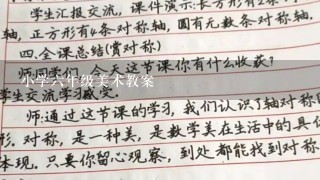 学生汇报交流，课件演示：长方形有2条对
轴，正方形有4条对称轴，圆有无数条对称轴.
四.全课总结(赏对称)
师：同学们，今天这节课你有什么收获？
小学六年级美术教案
学生交流学习感受.
师：通过这节课的学习，我们认识了轴对称图
形.对称，是一种美，是数学美在生活中的具
体现.只要你留心观察，到处都能找到对称